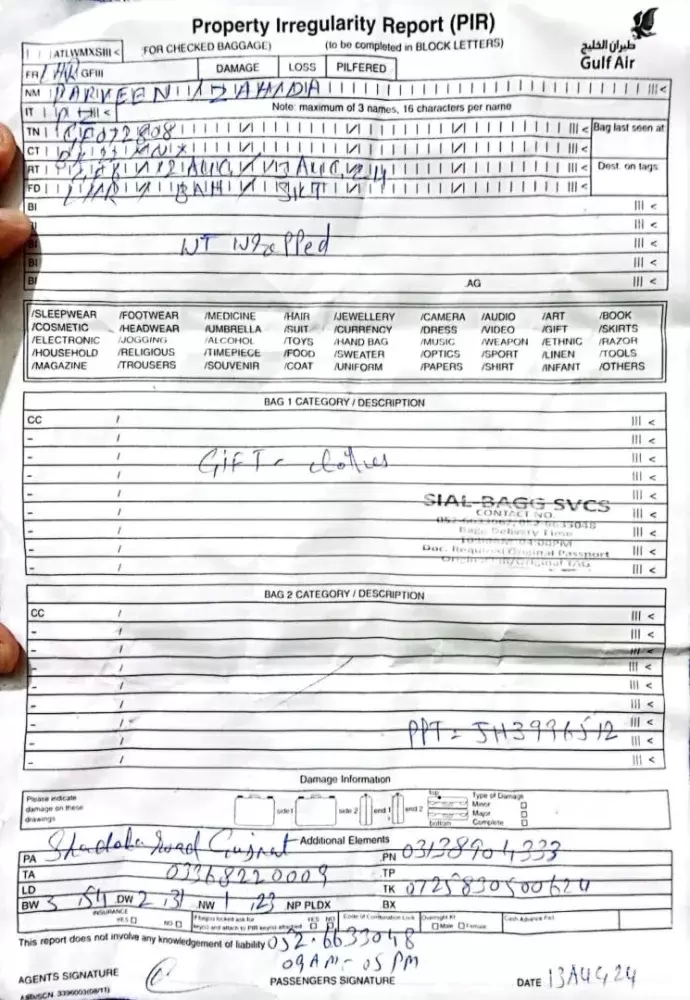 Property Irregularity Report (PIR)
ATLWMXSIII <
(FOR CHECKED BAGGAGE)
(to be completed in BLOCK LETTERS)
طيران الخليج
Gulf Air
FR LHR GFIII
DAMAGE LOSS PILFERED
NM PARVEEN / ZAHIDA III <
IT III <
Note: maximum of 3 names, 16 characters per name
TN GF072808 III < Bag last seen at
CT III <
RT 12 AUG 13 AUG III < Dest. on tags
FD LHR / BAH / SKT III <
BI III <
III <
BI WT Wrapped III <
BI III <
BI AG III <
/SLEEPWEAR /FOOTWEAR /MEDICINE /HAIR /JEWELLERY /CAMERA /AUDIO /ART /BOOK
/COSMETIC /HEADWEAR /UMBRELLA /SUIT /CURRENCY /DRESS /VIDEO /GIFT /SKIRTS
/ELECTRONIC /JOGGING /ALCOHOL /TOYS /HAND BAG /MUSIC /WEAPON /ETHNIC /RAZOR
/HOUSEHOLD /RELIGIOUS /TIMEPIECE /FOOD /SWEATER /OPTICS /SPORT /LINEN /TOOLS
/MAGAZINE /TROUSERS /SOUVENIR /COAT /UNIFORM /PAPERS /SHIRT /INFANT /OTHERS
BAG 1 CATEGORY / DESCRIPTION
CC / III <
- / III <
- / III <
- / GIFT - clothes III <
- / III <
SIAL-BAGG SVCS
CONTACT NO.
- / III <
Bagg Delivery Time
- / III <
Doc. Required Original Passport
- / III <
- / III <
BAG 2 CATEGORY / DESCRIPTION
CC / III <
- / III <
- / III <
- / III <
- / III <
- / III <
- / PPT = JH3996512 III <
- / III <
- / III <
Damage Information
Please indicate
damage on these
drawings
side 1 side 2 end 1 end 2
top
bottom
Type of Damage
Minor
Major
Complete
Additional Elements
PA Shadola Road Gujrat PN 03138904333
TA 03368220009 TP
LD TK 0725830500624
BW 3 154 DW 2 131 NW 1 123 NP PLDX BX
INSURANCE
YES NO
YES NO
Code of Combination Lock
Overnight Kit
Male Female
Cash Advance Paid
This report does not involve any knowledgement of liability 052-6633048
09AM - 05PM
AGENTS SIGNATURE
PASSENGERS SIGNATURE
DATE 13AUG24